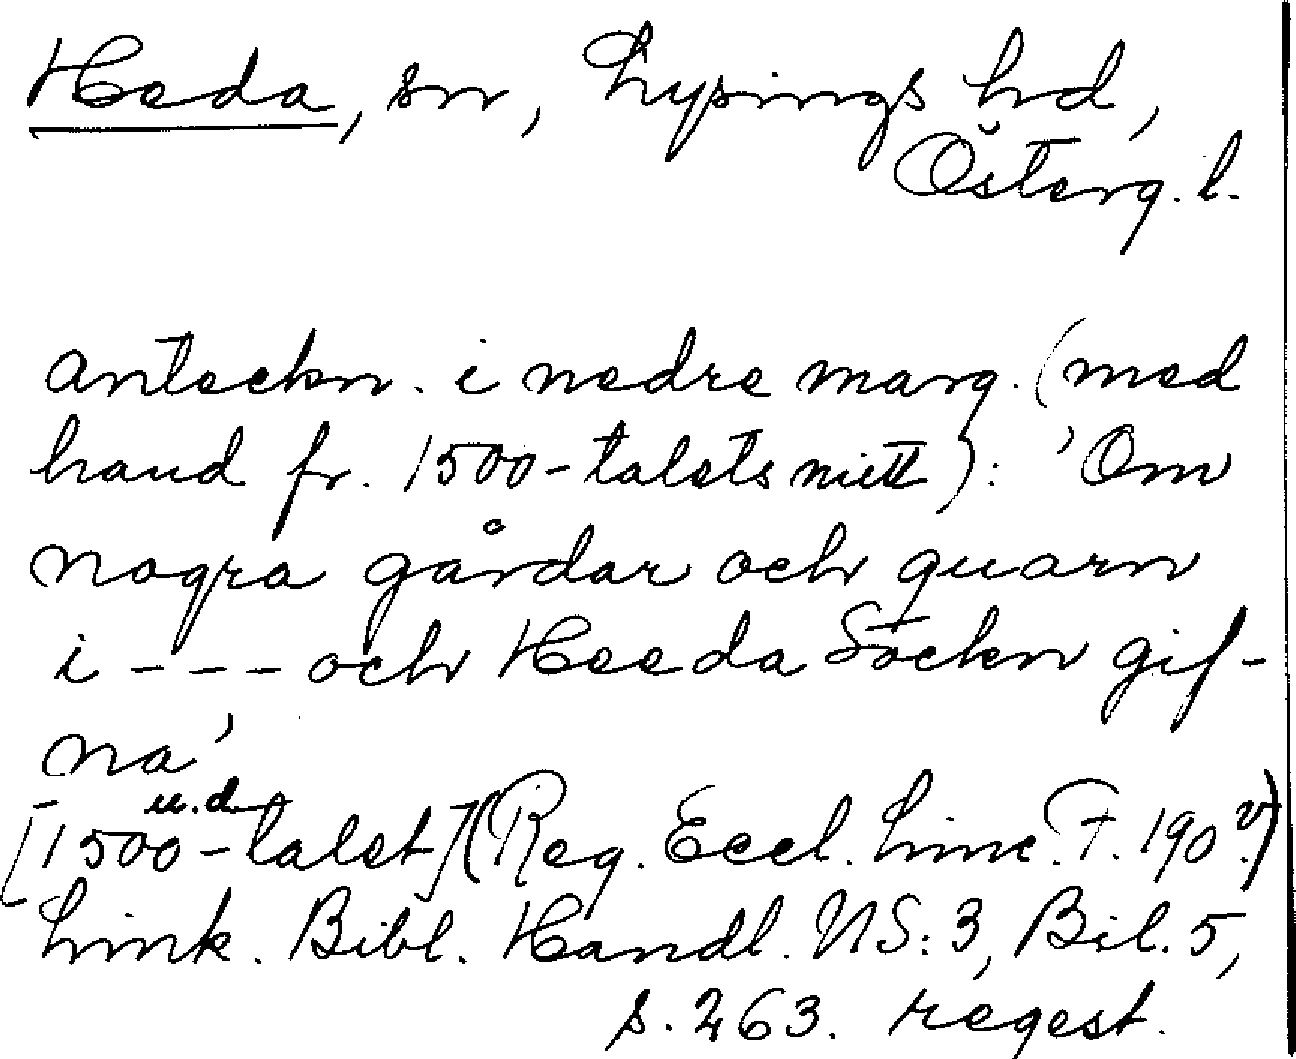 Heda, sn, Lysings hd,
Österg. l.
anteckn. i nedre marg. (med
hand fr. 1500-talets mitt): 'Om
nogra gårdar och quarn
i --- och Heeda Sockn gif-
na'
u.d.
[1500-talet] (Reg. Eccl. Linc. F. 190 v.)
Link. Bibl. Handl. NS: 3, Bil. 5,
s. 263. regest.